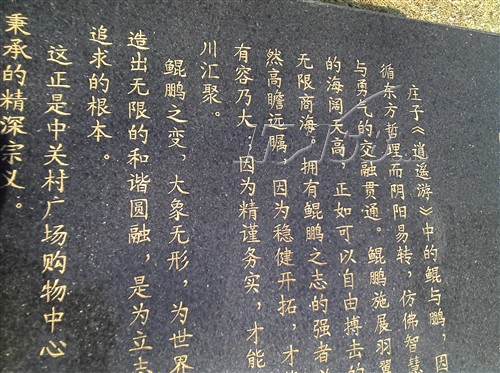 庄子《逍遥游》中的鲲与鹏，因
循东方哲理而阴阳易转，仿佛智慧
与勇气的交融贯通。鲲鹏施展羽翼
的海阔天高，正如可以自由搏击的
无限商海。拥有鲲鹏之志的强者
然高瞻远瞩，因为稳健开拓，才
有容乃大；因为精谨务实，才能
川汇聚。
鲲鹏之变，大象无形，为世界
造出无限的和谐圆融，是为立志
追求的根本。
这正是中关村广场购物中心
秉承的精深宗义。